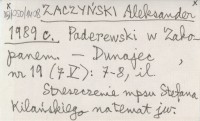 ZACZYŃSKI Aleksander
1989 c. Paderewski w Zako-
panem. — Dunajec,
nr 19 (7 V): 7-8, il
Streszczenie mpsu Stefana
Kilańskiego na temat jw.